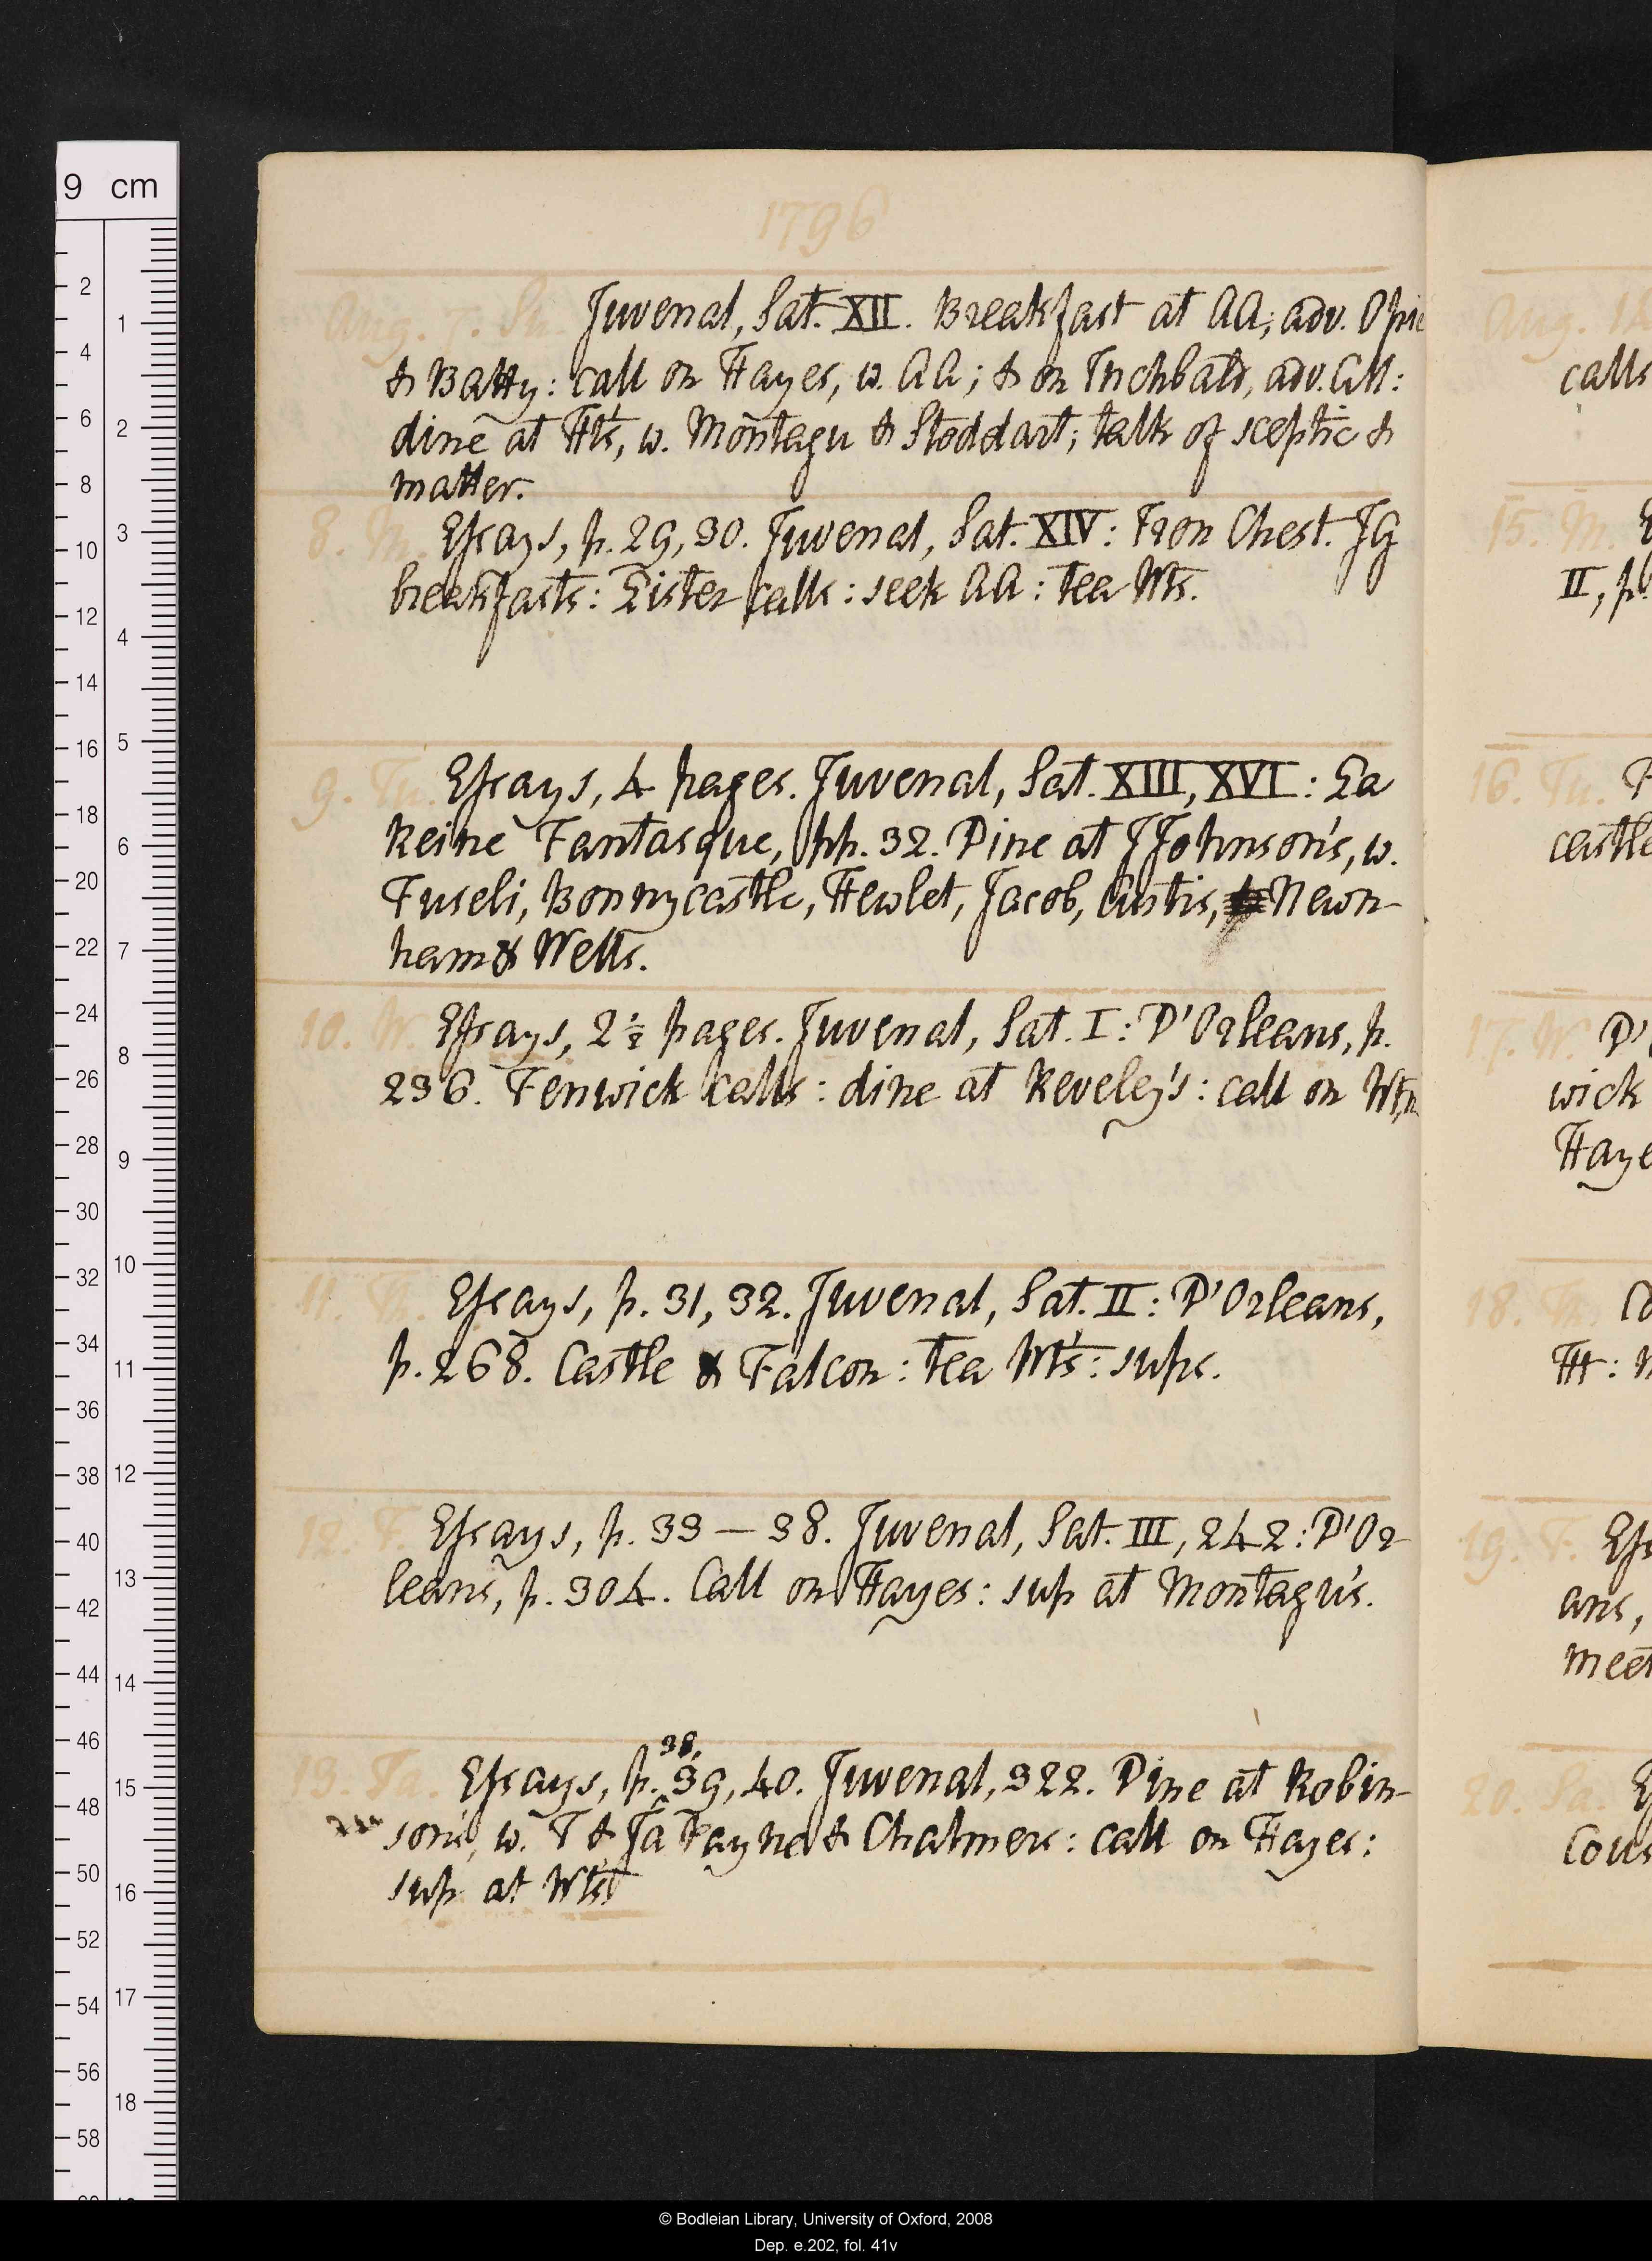 1796
Aug. 7. Su. Juvenal, Sat. XII. Breakfast at AA; adv. Opie
& Batty: call on Hayes, w. AA; & on Inchbald, adv. All:
dine at Ht's, w. Montagu & Stoddart; talk of sceptic &
matter.
8. M. Essays, p. 29, 30. Juvenal, Sat. XIV: Iron Chest. JG
breakfasts: Lister calls: seek AA: tea Wts.
9. Tu. Essays, 4 pages. Juvenal, Sat. XIII, XVI: La
Reine Fantasque, pp. 32. Dine at JJohnson's, w.
Fuseli, Bonnycastle, Hewlet, Jacob, Custis, Newn-
ham & Wells.
10. W. Essays, 2½ pages. Juvenal, Sat. I: D'Orleans, p.
236. Fenwick calls: dine at Reveley's: call on Wt,n
11. Th. Essays, p. 31, 32. Juvenal, Sat. II: D'Orleans,
p. 268. Castle & Falcon: tea Wt's: sups.
12. F. Essays, p. 33 — 38. Juvenal, Sat. III, 242: D'Or-
leans, p. 304. Call on Hayes: sup at Montagu's.
13. Sa. Essays, p. 38, 39, 40. Juvenal, 322. Dine at Robin-
son's, w. T & Ja Payne & Chalmers: call on Hayes:
sup at Wt's
calls
15. M.
II, p
16. Tu.
castle
17. W. D'
wick
Haye
18. Th. Co
Ht:
19. F. Ess
ans,
meet
20. Sa. E
Cous
9 cm
2 4 6 8 10 12 14 16 18 20 22 24 26 28 30 32 34 36 38 40 42 44 46 48 50 52 54 56 58
1 2 3 4 5 6 7 8 9 10 11 12 13 14 15 16 17 18
© Bodleian Library, University of Oxford, 2008
Dep. e.202, fol. 41v